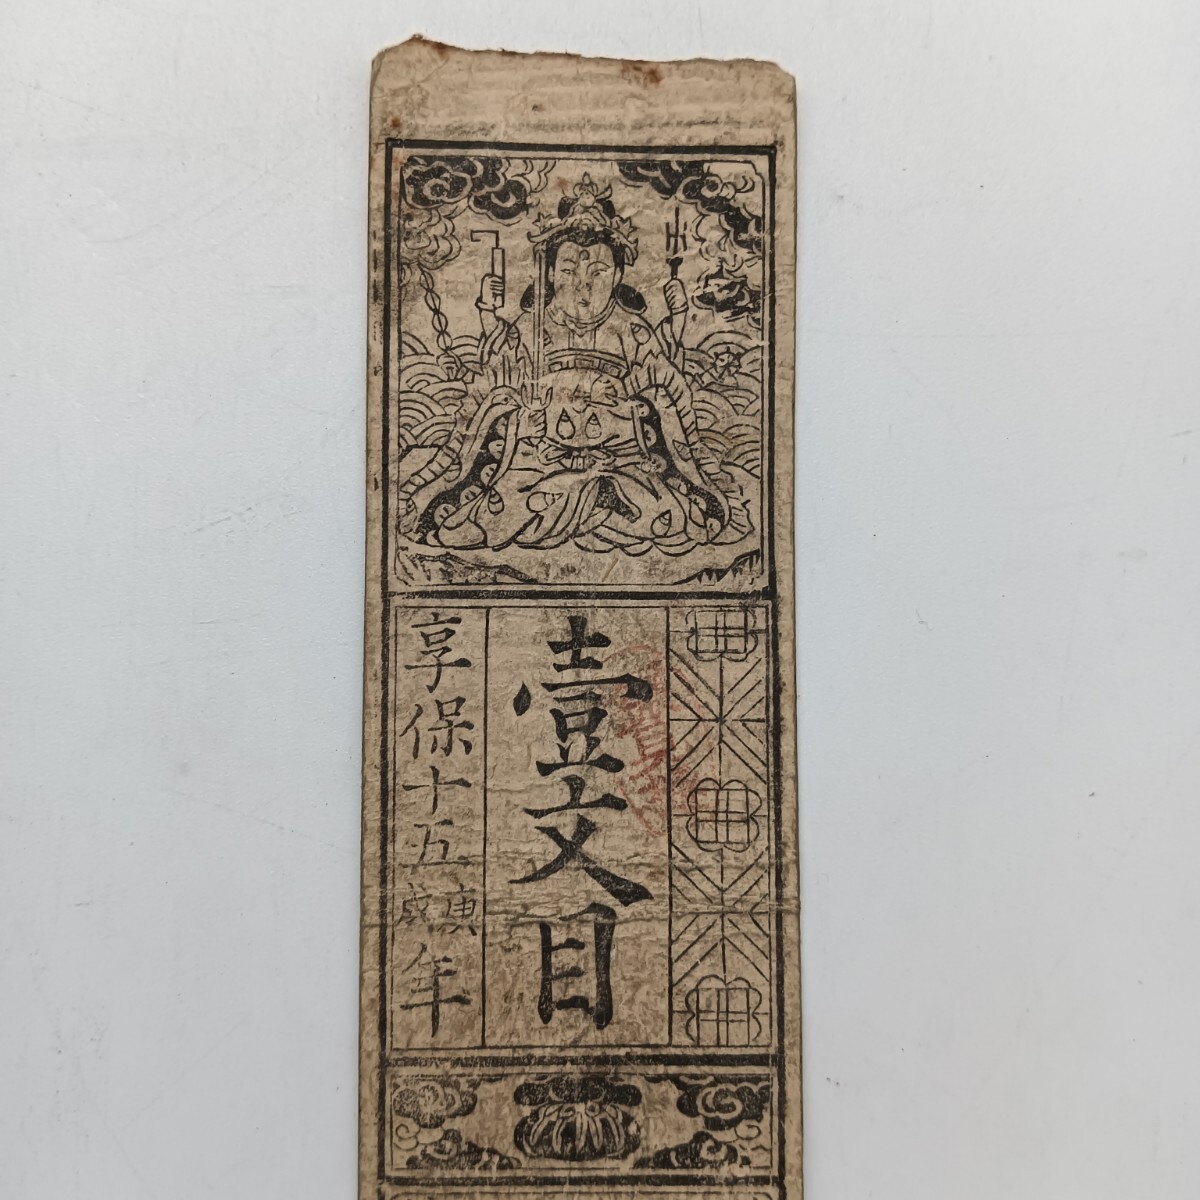 壹文目
享保十五庚戌年